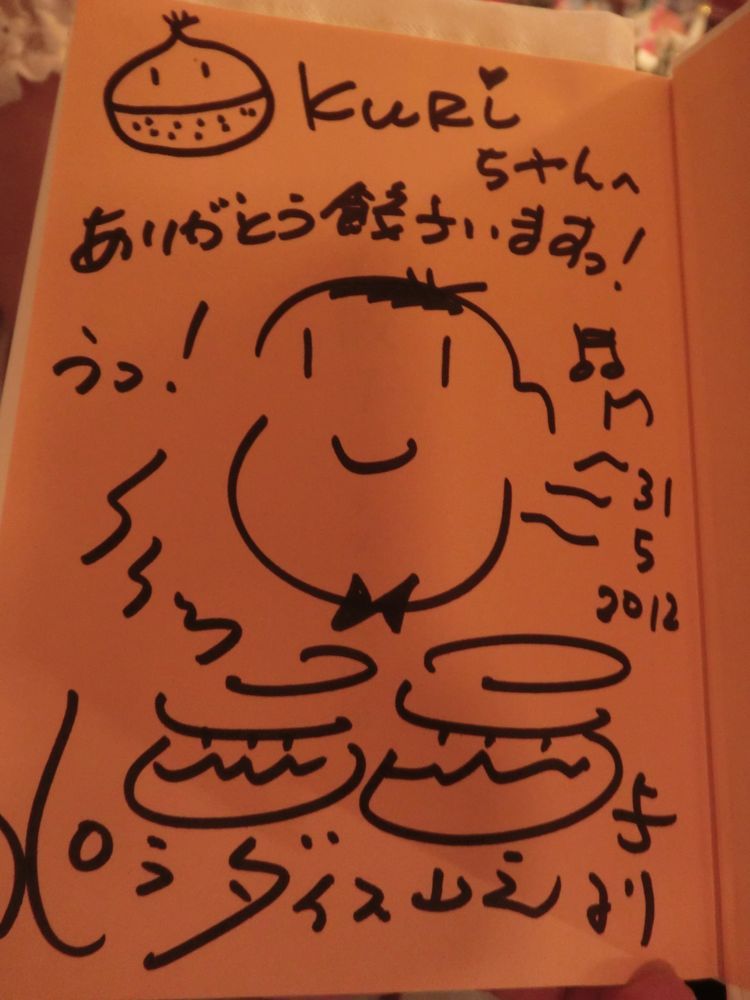 KuRi
ちゃんへ
ありがとう餃子いますっ!
うっ!
31
5
2012
パラダイス山元より